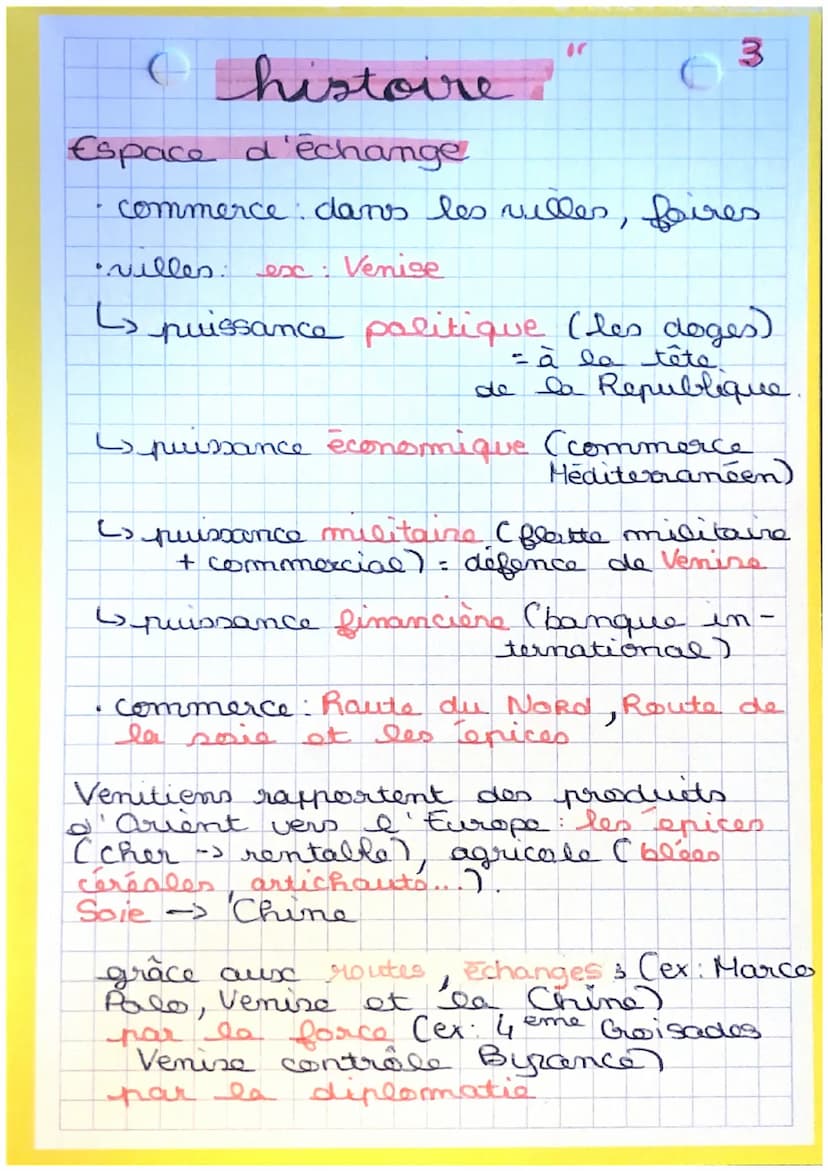 3
histoire
Espace d'échange
• commerce : dans les villes, foires
• villes : ex : Venise
↳ puissance politique (les doges)
= à la tête
de la Republique.
↳ puissance économique (commerce
Méditerranéen)
↳ puissance militaire (flotte militaire
+ commercial) = défence de Venise
↳ puissance financière (banque in-
ternational)
• commerce : Route du Nord, Route de
la soie et les épices
Venitiens rapportent des produits
d'Orient vers l'Europe : les épices
(cher -> rentable), agricole (blées
céréales, artichauts...).
Soie -> Chine
grâce aux routes, échanges ; (ex : Marco
Polo, Venise et la Chine)
par la force (ex : 4ème Croisades
Venise contrôle Byzance)
par la diplomatie